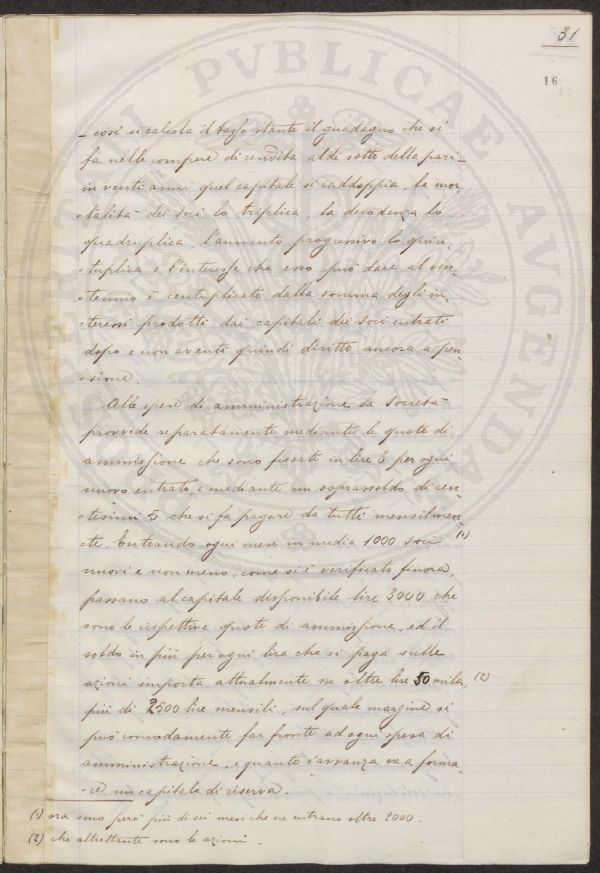 31
16
– così si calcola il tasso stante il guadagno che si
fa nelle compere di rendita al di sotto della pari –
in venti anni quel capitale si raddoppia, la mor-
-talità dei soci lo triplica, la decadenza lo
quadruplica, l'aumento progressivo lo quin-
-tuplica e l'interesse che esso può dare al ven-
-tennio è centuplicato dalla somma degli in-
-teressi prodotti dai capitali dei soci entrati
dopo e non aventi quindi diritto ancora a pen-
-sione.
Alle spese di amministrazione la Società
provvede separatamente mediante le quote di
ammissione che sono fissate in lire 3 per ogni
nuovo entrato, e mediante un soprassoldo di cen-
-tesimi 5 che si fa pagare da tutti mensilmen-
-te. Entrando ogni mese in media 1000 soci (1)
nuovi e non meno, come si è verificato finora,
passano al capitale disponibile lire 3000 che
sono le rispettive quote di ammissione, ed il
soldo in più per ogni lira che si paga sulle
azioni importa attualmente su oltre lire 50 mila, (2)
più di 2500 lire mensili, sul quale margine si
può comodamente far fronte ad ogni spesa di
amministrazione, e quanto s'avvanza va a forma-
-re un capitale di riserva.
(1) ora sono però più di sei mesi che ne entrano oltre 2000.
(2) che altrettante sono le azioni.
PROSPERITATI PVBLICAE AVGENDAE